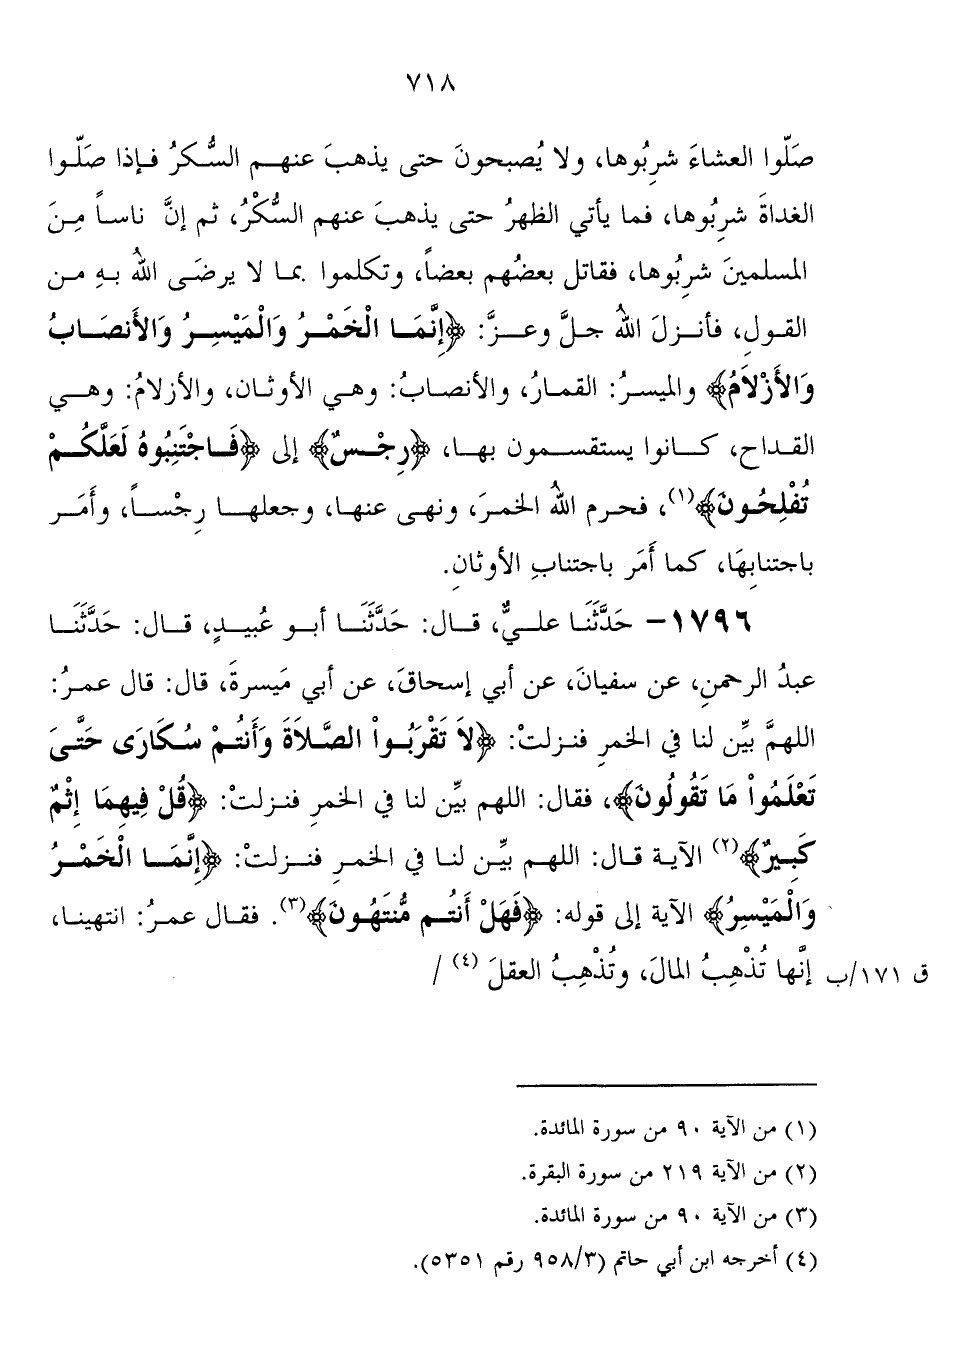 ٧١٨
صَلّوا العشاءَ شرِبُوها، ولا يُصبحونَ حتى يذهبَ عنهم السُّكرُ فإذا صَلّوا
الغداةَ شرِبُوها، فما يأتي الظهرُ حتى يذهبَ عنهم السُّكْرُ، ثم إنَّ ناساً مِنَ
المسلمينَ شرِبُوها، فقاتل بعضُهم بعضاً، وتكلموا بما لا يرضَى اللهُ بهِ من
القولِ، فأنزلَ اللهُ جلَّ وعزَّ: ﴿إِنَّمَا الْخَمْرُ وَالْمَيْسِرُ وَالأَنصَابُ
وَالأَزْلاَمُ﴾ والميسرُ: القمارُ، والأنصابُ: وهي الأوثان، والأزلامُ: وهي
القداح، كانوا يستقسمون بها، ﴿رِجْسٌ﴾ إلى ﴿فَاجْتَنِبُوهُ لَعَلَّكُمْ
تُفْلِحُونَ﴾(١)، فحرم اللهُ الخمرَ، ونهى عنها، وجعلها رِجْساً، وأَمَر
باجتنابِهَا، كما أَمَر باجتنابِ الأوثانِ.
١٧٩٦- حَدَّثَنَا عليٌّ، قال: حَدَّثَنَا أبو عُبيدٍ، قال: حَدَّثَنَا
عبدُ الرحمنِ، عن سفيانَ، عن أبي إسحاقَ، عن أبي مَيسرةَ، قال: قال عمرُ:
اللهمَّ بيِّن لنا في الخمرِ فنزلتْ: ﴿لاَ تَقْرَبُواْ الصَّلاَةَ وَأَنتُمْ سُكَارَى حَتَّىَ
تَعْلَمُواْ مَا تَقُولُونَ﴾، فقال: اللهم بيِّن لنا في الخمرِ فنزلتْ: ﴿قُلْ فِيهِمَا إِثْمٌ
كَبِيرٌ﴾(٢) الآية قال: اللهم بيِّن لنا في الخمرِ فنزلتْ: ﴿إِنَّمَا الْخَمْرُ
وَالْمَيْسِرُ﴾ الآية إلى قوله: ﴿فَهَلْ أَنتُم مُّنتَهُونَ﴾(٣). فقال عمرُ: انتهينا،
ق ١٧١/ب إنَّها تُذْهِبُ المالَ، وتُذْهِبُ العقلَ (٤) /
(١) من الآية ٩٠ من سورة المائدة.
(٢) من الآية ٢١٩ من سورة البقرة.
(٣) من الآية ٩٠ من سورة المائدة.
(٤) أخرجه ابن أبي حاتم (٩٥٨/٣ رقم ٥٣٥١).